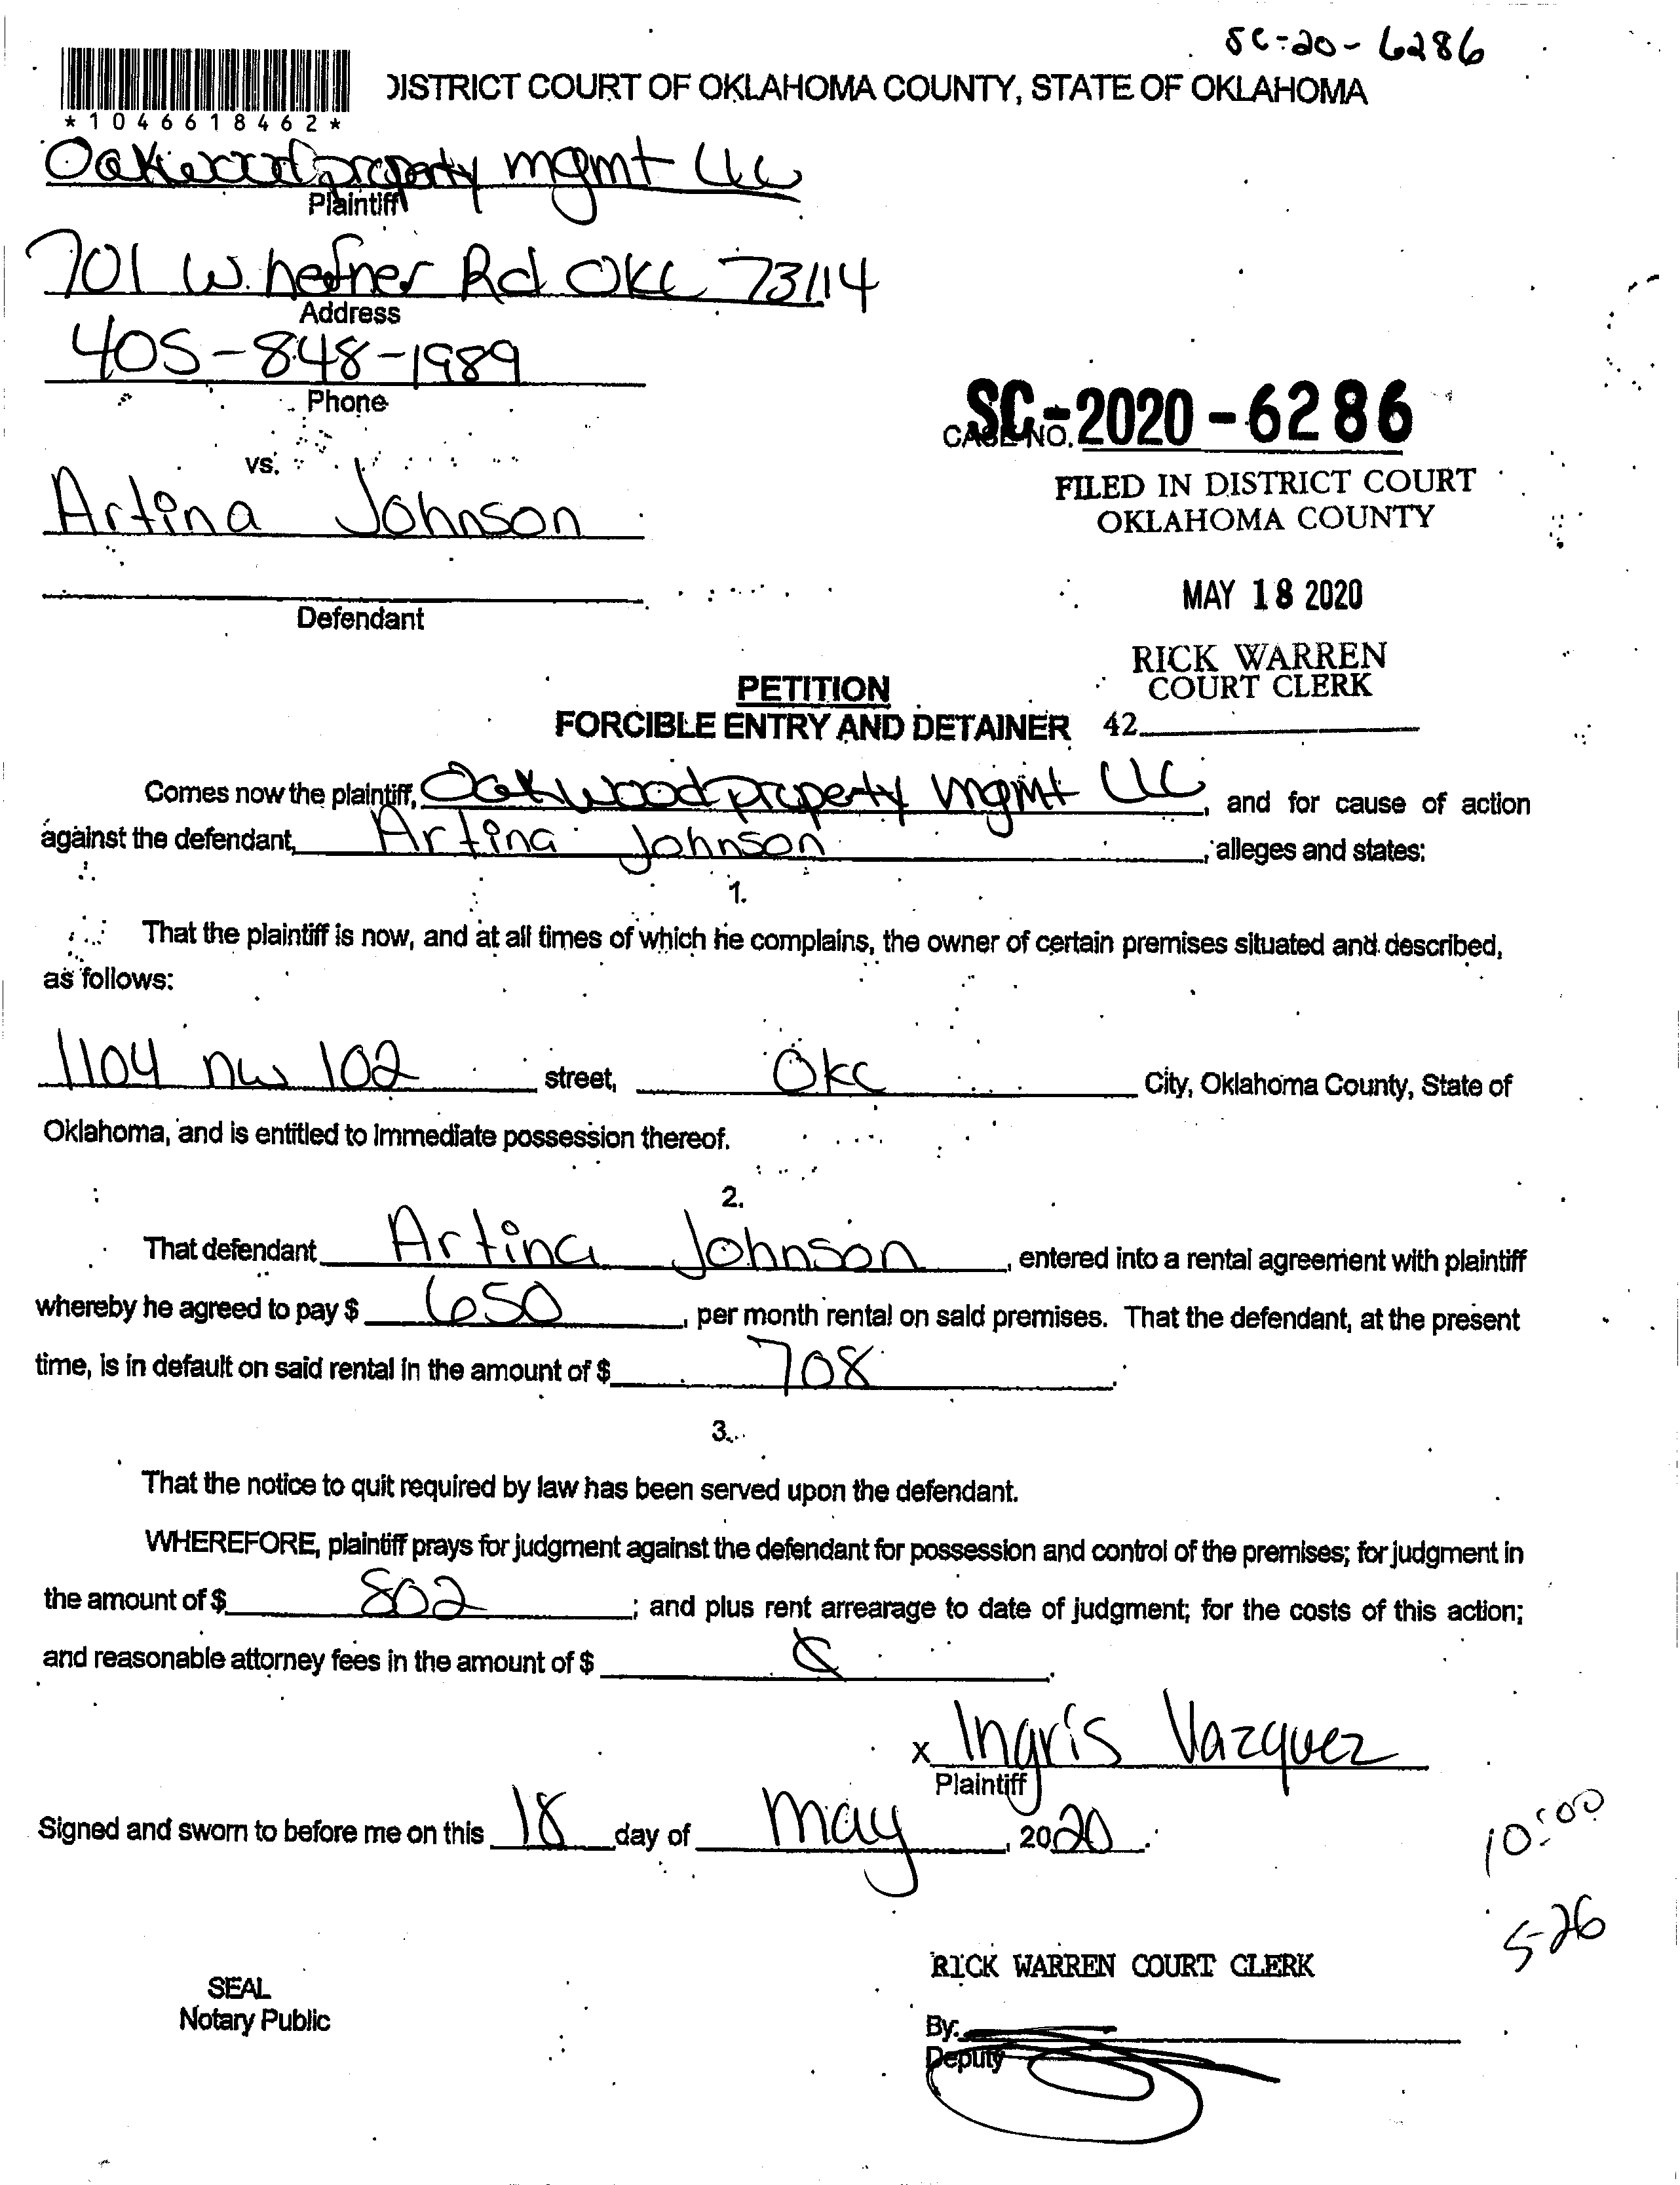 SC-20-6286
DISTRICT COURT OF OKLAHOMA COUNTY, STATE OF OKLAHOMA
*1046618462*
Oakwood property mgmt LLC
Plaintiff
701 W. hefner Rd OKC 73114
Address
405-848-1989
Phone
SC-2020-6286
CASE NO.
vs.
FILED IN DISTRICT COURT
OKLAHOMA COUNTY
Artina Johnson
MAY 18 2020
Defendant
RICK WARREN
COURT CLERK
PETITION
FORCIBLE ENTRY AND DETAINER
42
Comes now the plaintiff, Oakwood property mgmt LLC, and for cause of action
against the defendant, Artina Johnson, alleges and states:
1.
That the plaintiff is now, and at all times of which he complains, the owner of certain premises situated and described,
as follows:
1104 nw 102 street, Okc City, Oklahoma County, State of
Oklahoma, and is entitled to immediate possession thereof.
2.
That defendant Artina Johnson, entered into a rental agreement with plaintiff
whereby he agreed to pay $ 650, per month rental on said premises. That the defendant, at the present
time, is in default on said rental in the amount of $ 708.
3.
That the notice to quit required by law has been served upon the defendant.
WHEREFORE, plaintiff prays for judgment against the defendant for possession and control of the premises; for judgment in
the amount of $ 802; and plus rent arrearage to date of judgment; for the costs of this action;
and reasonable attorney fees in the amount of $
x Ingris Vazquez
Plaintiff
Signed and sworn to before me on this 18 day of may, 2020.
10:00
5-26
RICK WARREN COURT CLERK
SEAL
Notary Public
By:
Deputy